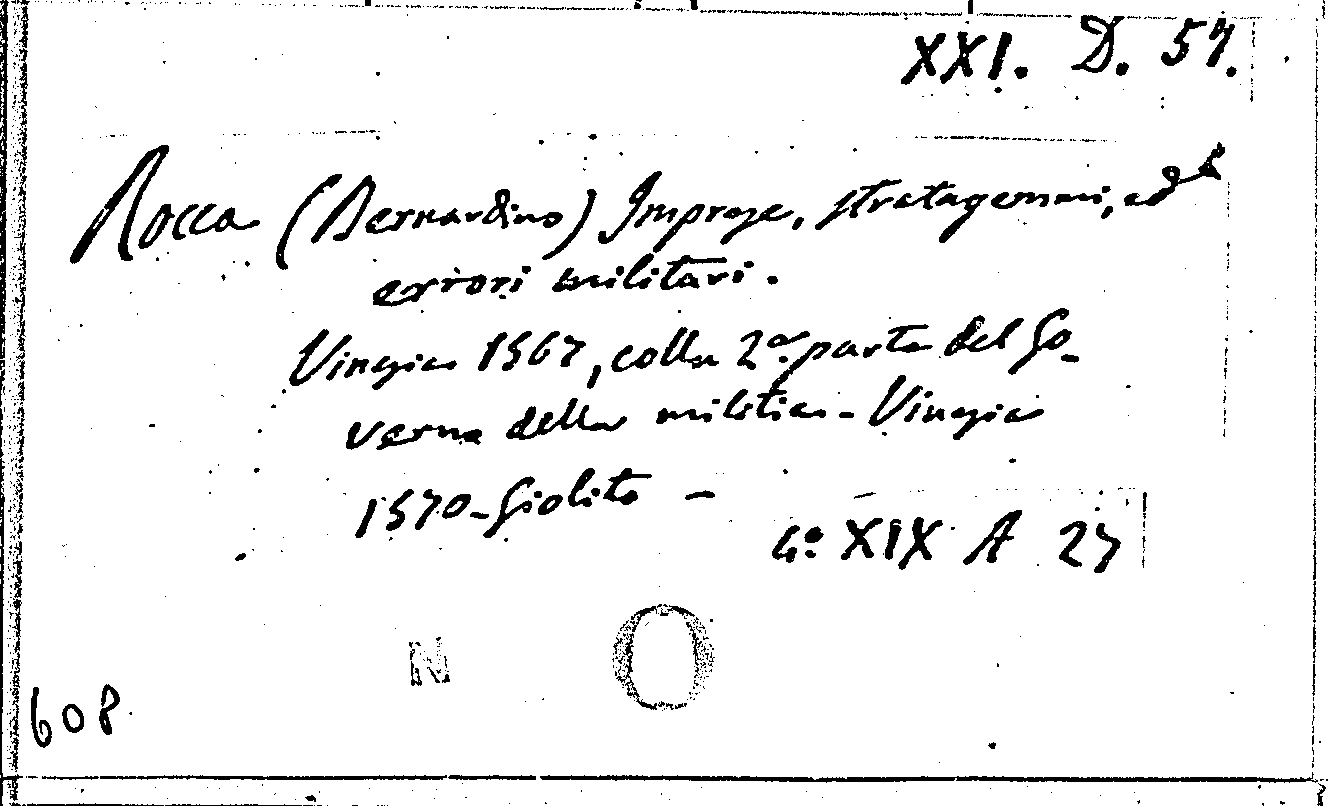 XXI. D. 57.
Rocca (Bernardino) Imprese, stratagemmi, ed
errori militari.
Vinegia 1567, colla 2ª. parte del Go-
verno della militia - Vinegia
1570 - Giolito -
4º. XIX A 27
N O
608